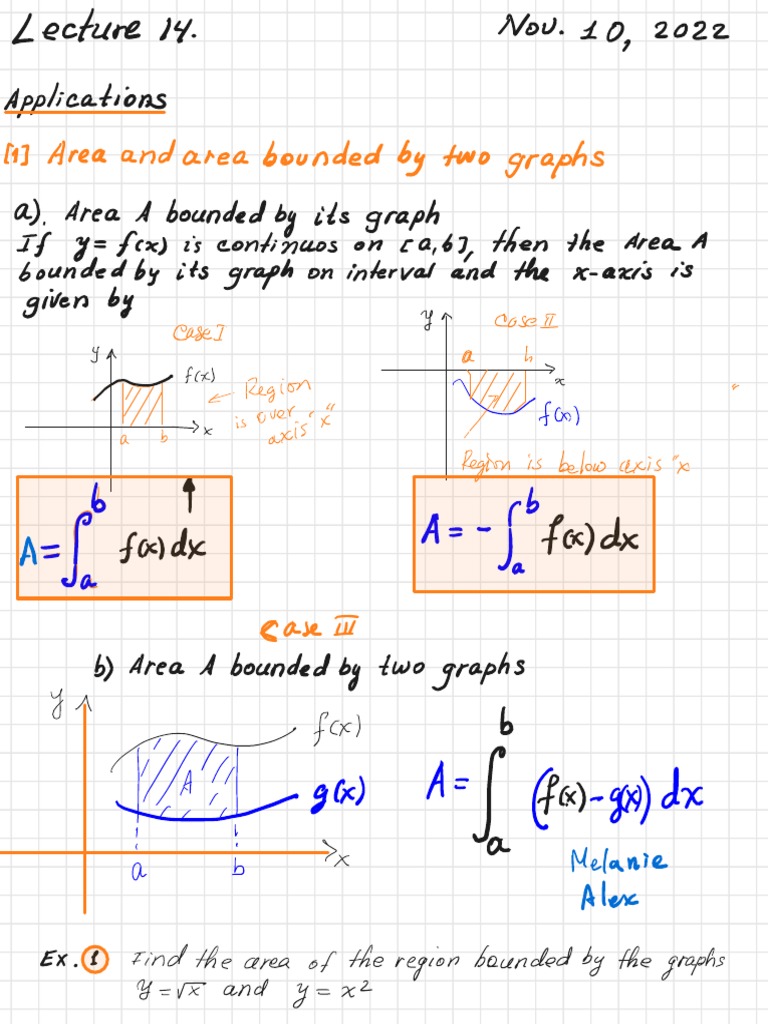 Lecture 14. Nov. 10, 2022
Applications
[1] Area and area bounded by two graphs
a). Area A bounded by its graph
If y = f(x) is continuos on [a,b], then the Area A
bounded by its graph on interval and the x-axis is
given by
Case I
y
f(x)
← Region
is over
axis "x"
a b x
Case II
y
a b
x
f(x)
Region is below axis "x
A = ∫_a^b f(x) dx
A = - ∫_a^b f(x) dx
Case III
b) Area A bounded by two graphs
y
f(x)
A
g(x)
a b x
A = ∫_a^b (f(x) - g(x)) dx
Melanie
Alex
Ex. 1 Find the area of the region bounded by the graphs
y = √x and y = x²